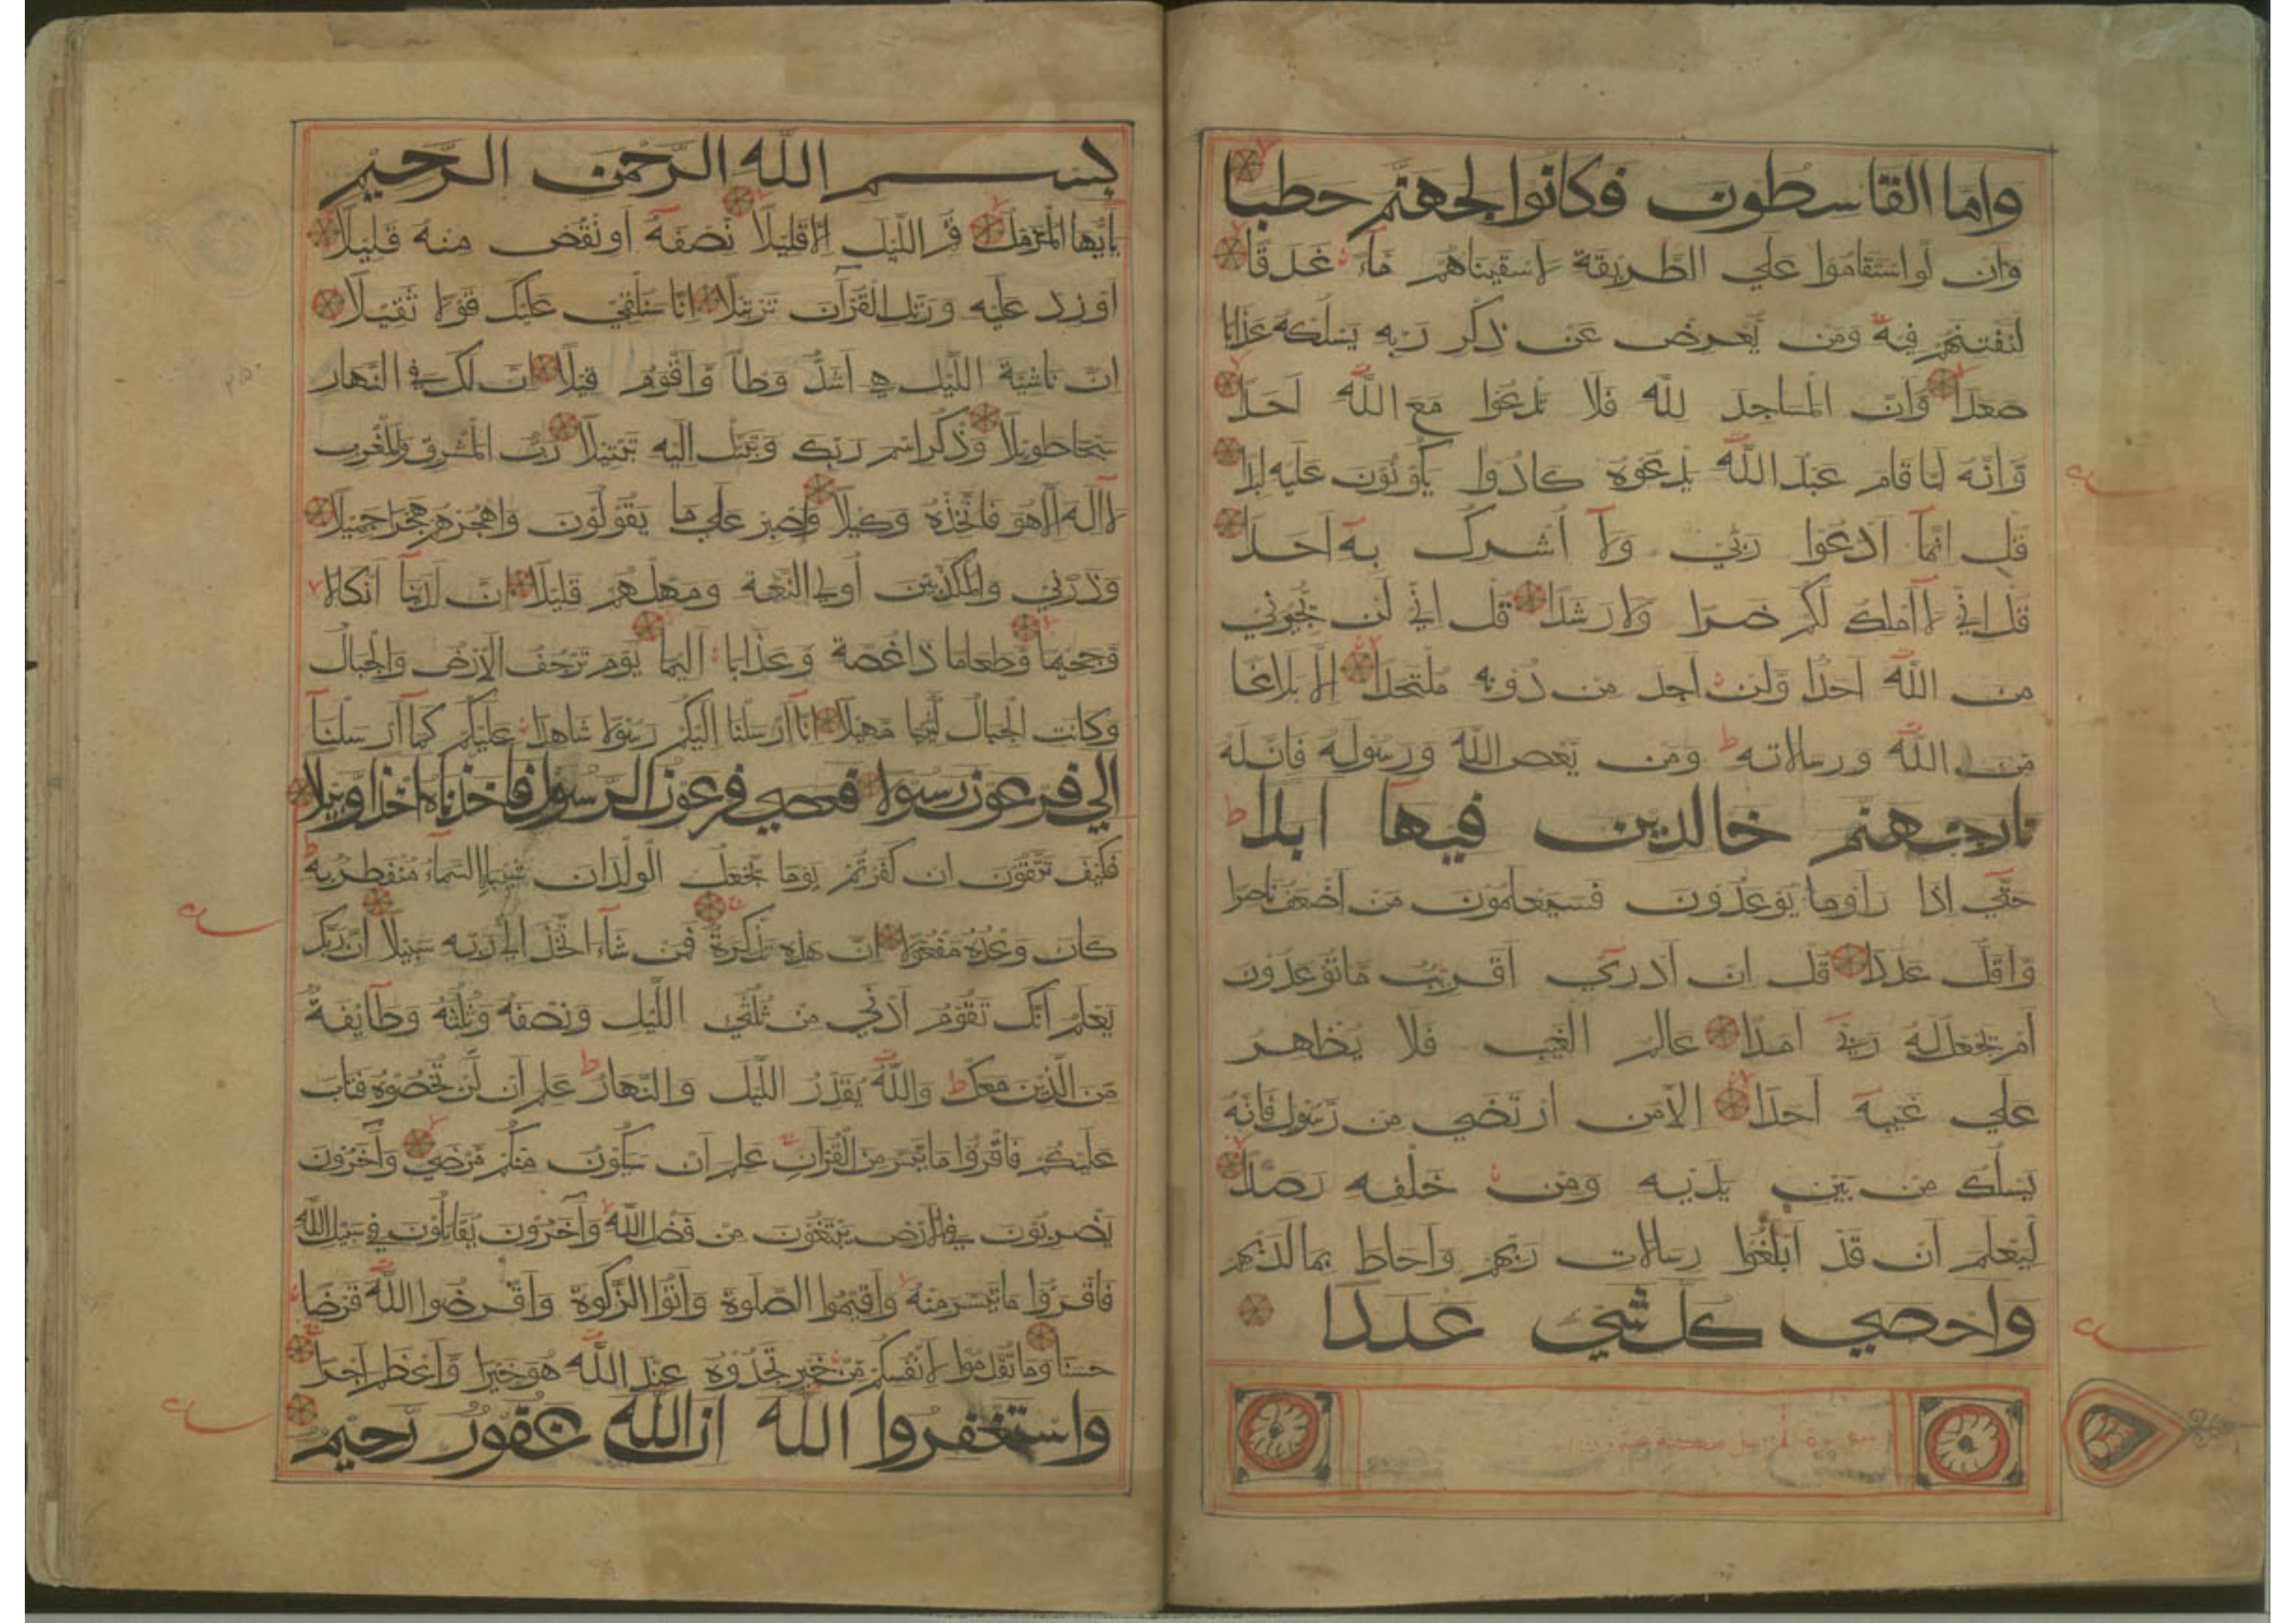 واما القاسطون فكانوا لجهنم حطبا
وَان لَو استَقَامُوا عَلي الطَريقَة لَاسقَيناهُم مَاءً غَدَقًا
لنَفتنَهُم فيه وَمَن يُعرض عَن ذكر رَبه يَسلُكهُ عَذَابا
صَعَدًا وَانّ المَسَاجدَ للّه فَلَا تَدعُوا مَعَ اللّه اَحَدًا
وَّاَنّهُ لمَا قَام عَبدُ اللّه يَدعُوهُ كَادُوا يَكُونُونَ عَلَيه لبَدًا
قُل انّمَآ اَدعُوا رَبّي وَلَآ اُشركُ به اَحَدًا
قُل انّي لَآ اَملكُ لَكُم ضَرّا وَلَا رَشَدًا قُل انّي لَن يُجيرَني
منَ اللّه اَحَدٌ وَّلَن اَجدَ من دُونه مُلتَحَدًا الّا بَلَاغًا
مّنَ اللّه وَرسَالَاته وَمَن يَعص اللّه وَرَسُولَهُ فَانّ لَهُ
نار جهنم خالدين فيها ابدا
حَتّي اذَا رَاَوا مَا يُوعَدُونَ فَسَيَعلَمُونَ مَن اَضعَفُ نَاصرًا
وَّاَقَلُّ عَدَدًا قُل ان اَدرَي اَقَريبٌ مَا تُوعَدُونَ
اَم يَجعَلُ لَهُ رَبّي اَمَدًا عَالم الغَيب فَلَا يُظهرُ
عَلي غَيبه اَحَدًا الّا مَن ارتَضي من رّسُول فَانّهُ
يَسلُكُ من بَين يَدَيه وَمن خَلفه رَصَدًا
ليَعلَمَ اَن قَد اَبلَغُوا رسَالَات رَبّهم وَاَحَاطَ بمَا لَدَيهم
واحصي كل شي عددا
سورة المزمل مكية عشرون اية
بسم اللّه الرّحمن الرّحيم
يَاَيُّهَا المُزمّلُ قُم اللّيلَ الّا قَليلًا نّصفَهُ اَو انقُص منهُ قَليلًا
اَو زد عَلَيه وَرَتّل القُرآنَ تَرتيلًا انّا سَنُلقي عَلَيكَ قَولًا ثَقيلًا
انّ نَاشئَةَ اللّيل هي اَشَدُّ وَطاً وّاَقوَمُ قيلًا انّ لَكَ في النّهَار
سَبحًا طَويلًا وَذكُر اسمَ رَبّكَ وَتَبَتّل اليه تَبتيلًا رَبُّ المَشرق وَالمَغرب
لَآ الهَ الّا هُوَ فَاتّخذهُ وَكيلًا وَاصبر عَلي مَا يَقُولُونَ وَاهجُرهُم هَجرًا جَميلًا
وَذَرني وَالمُكَذّبينَ اُولي النَّعمَة وَمَهّلهُم قَليلًا انّ لَدَينَآ اَنكَالًا
وَجَحيمًا وَطَعَامًا ذَا غُصّة وَعَذَابًا اَليمًا يَومَ تَرجُفُ الاَرضُ وَالجبَالُ
وَكَانَت الجبَالُ كَثيبًا مَهيلًا انّآ اَرسَلنَا الَيكُم رَسُولًا شَاهدًا عَلَيكُم كَمَآ اَرسَلنَآ
الي فرعون رسولا فعصي فرعون الرسول فاخذناه اخذا وبيلا
فَكَيفَ تَتّقُونَ ان كَفَرتُم يَومًا يَجعَلُ الولدَانَ شيبًا السّمَآءُ مُنفَطرٌ به
كَانَ وَعدُهُ مَفعُولًا انّ هذه تَذكرَةٌ فَمَن شَآءَ اتّخَذَ الي رَبّه سَبيلًا انّ رَبّكَ
يَعلَمُ اَنّكَ تَقُومُ اَدني من ثُلُثَي اللّيل وَنصفَهُ وَثُلُثَهُ وَطَآئفَةٌ
مّنَ الّذينَ مَعَكَ وَاللّهُ يُقَدّرُ اللّيلَ وَالنّهَارَ عَلمَ اَن لَّن تُحصُوهُ فَتَابَ
عَلَيكُم فَاقرَؤُا مَا تَيَسّرَ منَ القُرآن عَلمَ اَن سَيَكُونُ منكُم مَّرضي وَآخَرُونَ
يَضربُونَ في الاَرض يَبتَغُونَ من فَضل اللّه وَآخَرُونَ يُقَاتلُونَ في سَبيل اللّه
فَاقرَؤُا مَا تَيَسّرَ منهُ وَاَقيمُوا الصّلَوةَ وَآتُوا الزّكَوةَ وَاَقرضُوا اللّهَ قَرضًا
حَسَنًا وَمَا تُقَدّمُوا لاَنفُسكُم مّن خَير تَجدُوهُ عندَ اللّه هُوَ خَيرًا وَّاَعظَمَ اَجرًا
واستغفروا اللّه ان اللّه غفور رحيم